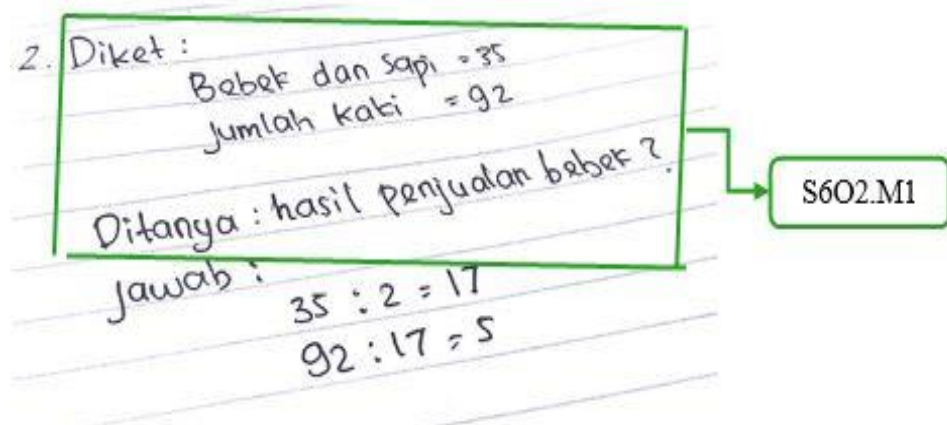 2. Diket :
Bebek dan sapi = 35
Jumlah kaki = 92
Ditanya : hasil penjualan bebek ?
Jawab :
35 : 2 = 17
92 : 17 = 5
S6O2.M1